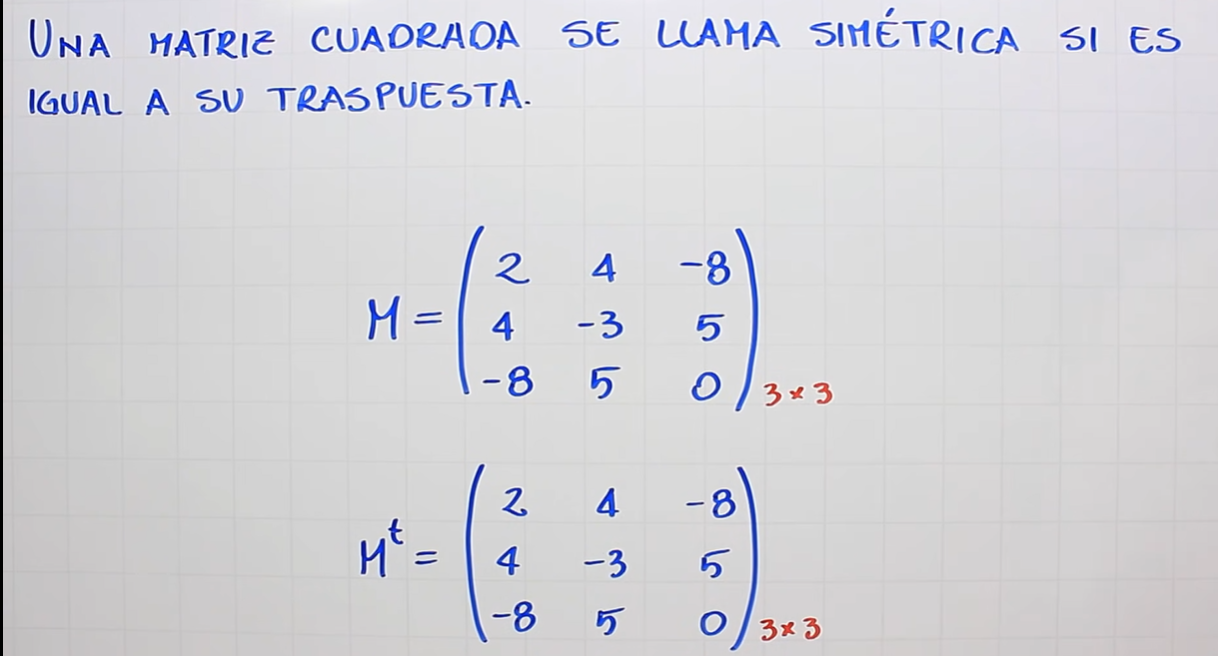 UNA MATRIZ CUADRADA SE LLAMA SIMÉTRICA SI ES
IGUAL A SU TRASPUESTA.
2 4 -8
M = 4 -3 5
-8 5 0 3×3
2 4 -8
Mᵗ = 4 -3 5
-8 5 0 3×3